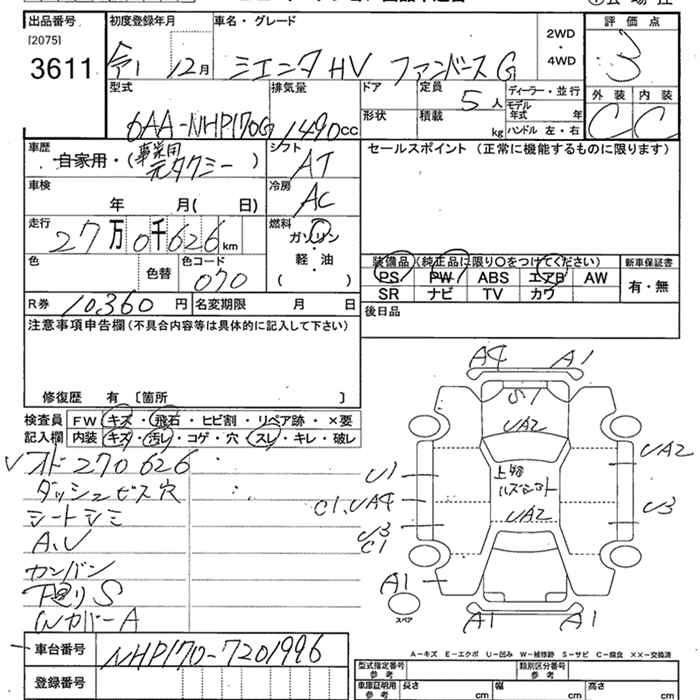 出品番号 初度登録年月 車名・グレード 評価点
[2075]
3611
令1 12月 シエンタHV ファンベースG 2WD・4WD 3
型式 排気量 ドア 定員 5人 ディーラー・並行 外装 内装
6AA-NHP170G 1490cc 形状 積載 kg モデル年式 年 ハンドル 左・右 C C
車歴 自家用・(事業用 元タクシー) シフト AT セールスポイント (正常に機能するものに限ります)
車検 年 月( 日) 冷房 AC
走行 27万0千626km 燃料 ガソリン・軽・油 ( )
色 色替 色コード 070
装備品 (純正品に限り〇をつけてください) 新車保証書
PS PW ABS エアB AW 有・無
SR ナビ TV カワ
R券 10,360円 名変期限 月 日 後日品
注意事項申告欄 (不具合内容等は具体的に記入して下さい)
修復歴 有 〔箇所 〕
検査員記入欄 FW キズ・飛石・ヒビ割・リペア跡・×要
内装 キズ・汚レ・コゲ・穴・スレ・キレ・破レ
オド270626
ダッシュビス穴
シートシミ
A,V
カンバン
下回りS
Wカバ-A
A4 A1
S1
UA2
UA2
U1
C1、UA4
上部
UA2
U3
U3
C1
A1
スペア
A1 A1
A-キズ E-エクボ U-凹み W-補修跡 S-サビ C-腐食 ××-交換済
車台番号 NHP170-7201996
登録番号
型式指定番号 参考 類別区分番号 参考
車庫証明用 参考 長さ cm 幅 cm 高さ cm